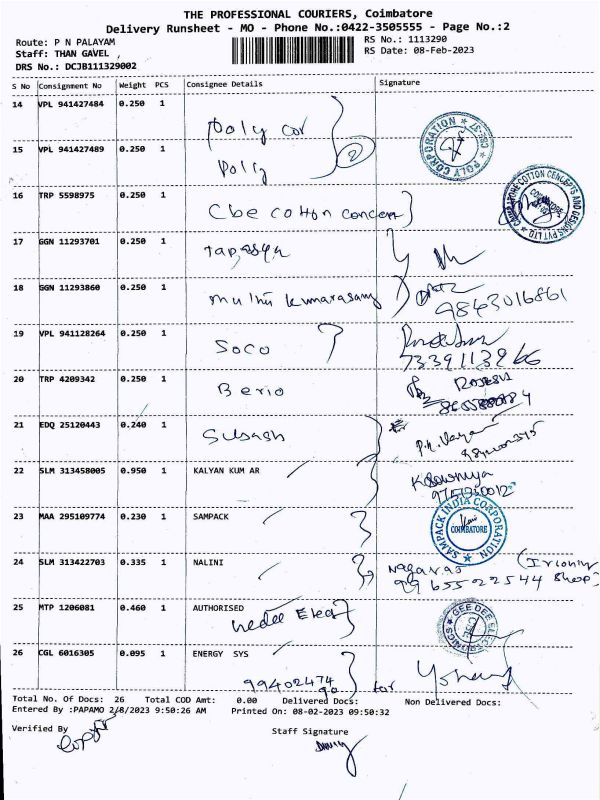 THE PROFESSIONAL COURIERS, Coimbatore
Delivery Runsheet - MO - Phone No.:0422-3505555 - Page No.:2
Route: P N PALAYAM
RS No.: 1113290
Staff: THAN GAVEL ,
RS Date: 08-Feb-2023
DRS No.: DCJB111329002
S No Consignment No Weight PCS Consignee Details Signature
14 VPL 941427484 0.250 1 Poly cor
15 VPL 941427489 0.250 1 Polly 2 POLY CORPORATION ★ CBE-37 ★
16 TRP 5598975 0.250 1 Cbe cotton concern COIMBATORE COTTON CONCEPTS AND DESIGNS PVT LTD
17 GGN 11293701 0.250 1 Tapasya
18 GGN 11293860 0.250 1 muthu kumarasamy 9843016861
19 VPL 941128264 0.250 1 Soco
20 TRP 4209342 0.250 1 Berio
21 EDQ 25120443 0.240 1 Subash
22 SLM 313458005 0.950 1 KALYAN KUM AR
23 MAA 295109774 0.230 1 SAMPACK SAMPACK INDIA CORPORATION COIMBATORE
24 SLM 313422703 0.335 1 NALINI Nagaraj (Ironing shop) 9965522544
25 MTP 1206081 0.460 1 AUTHORISED GEE DEE ELECTRONICS
26 CGL 6016305 0.095 1 ENERGY SYS
99402474
90 for
Total No. Of Docs: 26 Total COD Amt: 0.00 Delivered Docs: Non Delivered Docs:
Entered By :PAPAMO 2/8/2023 9:50:26 AM Printed On: 08-02-2023 09:50:32
Verified By
Staff Signature